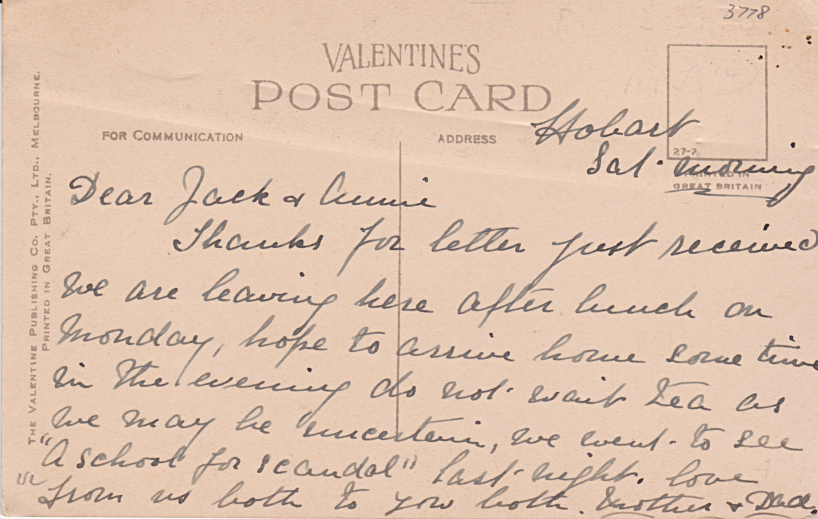 3778
VALENTINE'S
POST CARD
FOR COMMUNICATION
ADDRESS
27-2
PRINTED IN
GREAT BRITAIN
THE VALENTINE PUBLISHING CO. PTY., LTD., MELBOURNE.
PRINTED IN GREAT BRITAIN.
Hobart
Sat. morning
Dear Jack & Annie
Thanks for letter just received
We are leaving here after lunch on
Monday, hope to arrive home some time
in the evening do not wait tea as
we may be uncertain, we went to see
"A school for scandal" last night. love
from us both to you both. Mother & Dad.